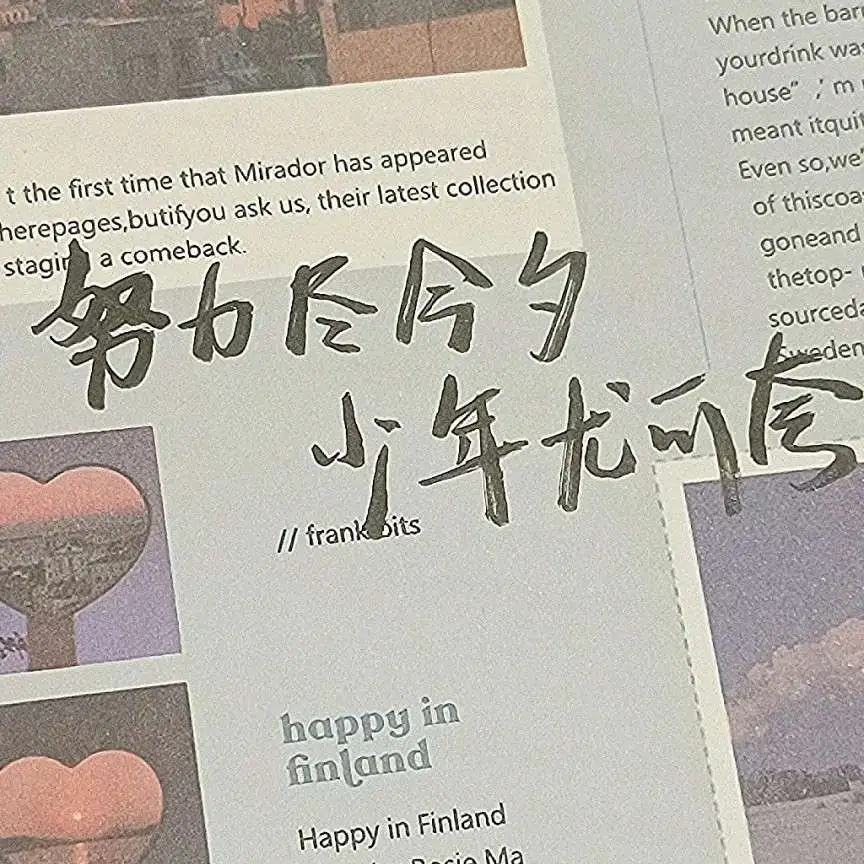 t the first time that Mirador has appeared
herepages,butifyou ask us, their latest collection
a comeback.
When the
yourdrink
house” ,’ m
meant
Even so,we’
of
goneand
thetop-
努力尽今夕
少年尤可夸
// frank bits
happy in
finland
Happy in Finland
Ma